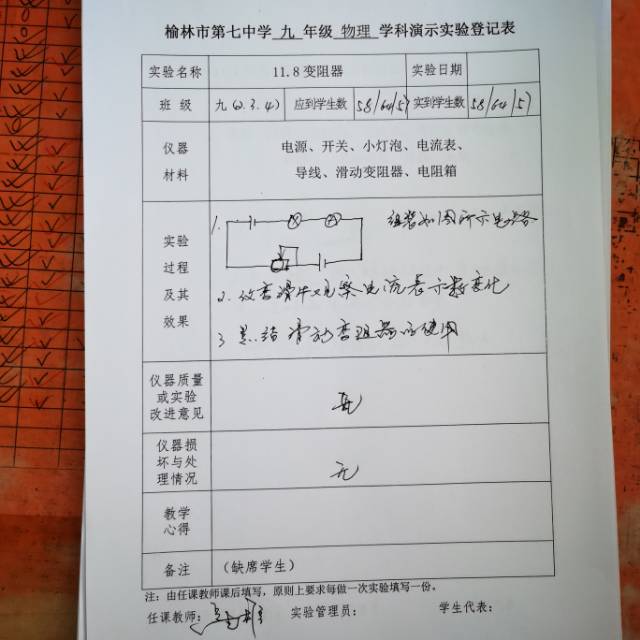 榆林市第七中学 九 年级 物理 学科演示实验登记表
实验名称 11.8变阻器 实验日期
班 级 九(2.3.4) 应到学生数 58/64/57 实到学生数 58/64/57
仪器 材料 电源、开关、小灯泡、电流表、
导线、滑动变阻器、电阻箱
实验
过程
及其
效果
1. 组装如图所示电路
2. 改变滑片观察电流表示数变化
3 总结滑动变阻器的使用
仪器质量
或实验
改进意见
无
仪器损
坏与处
理情况
无
教学
心得
备注 (缺席学生)
注:由任课教师课后填写,原则上要求每做一次实验填写一份。
任课教师: 实验管理员: 学生代表: